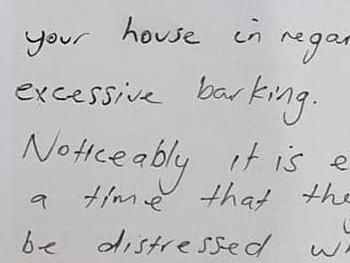 your house in regar
excessive barking.
Noticeably it is e
a time that the
be distressed wh